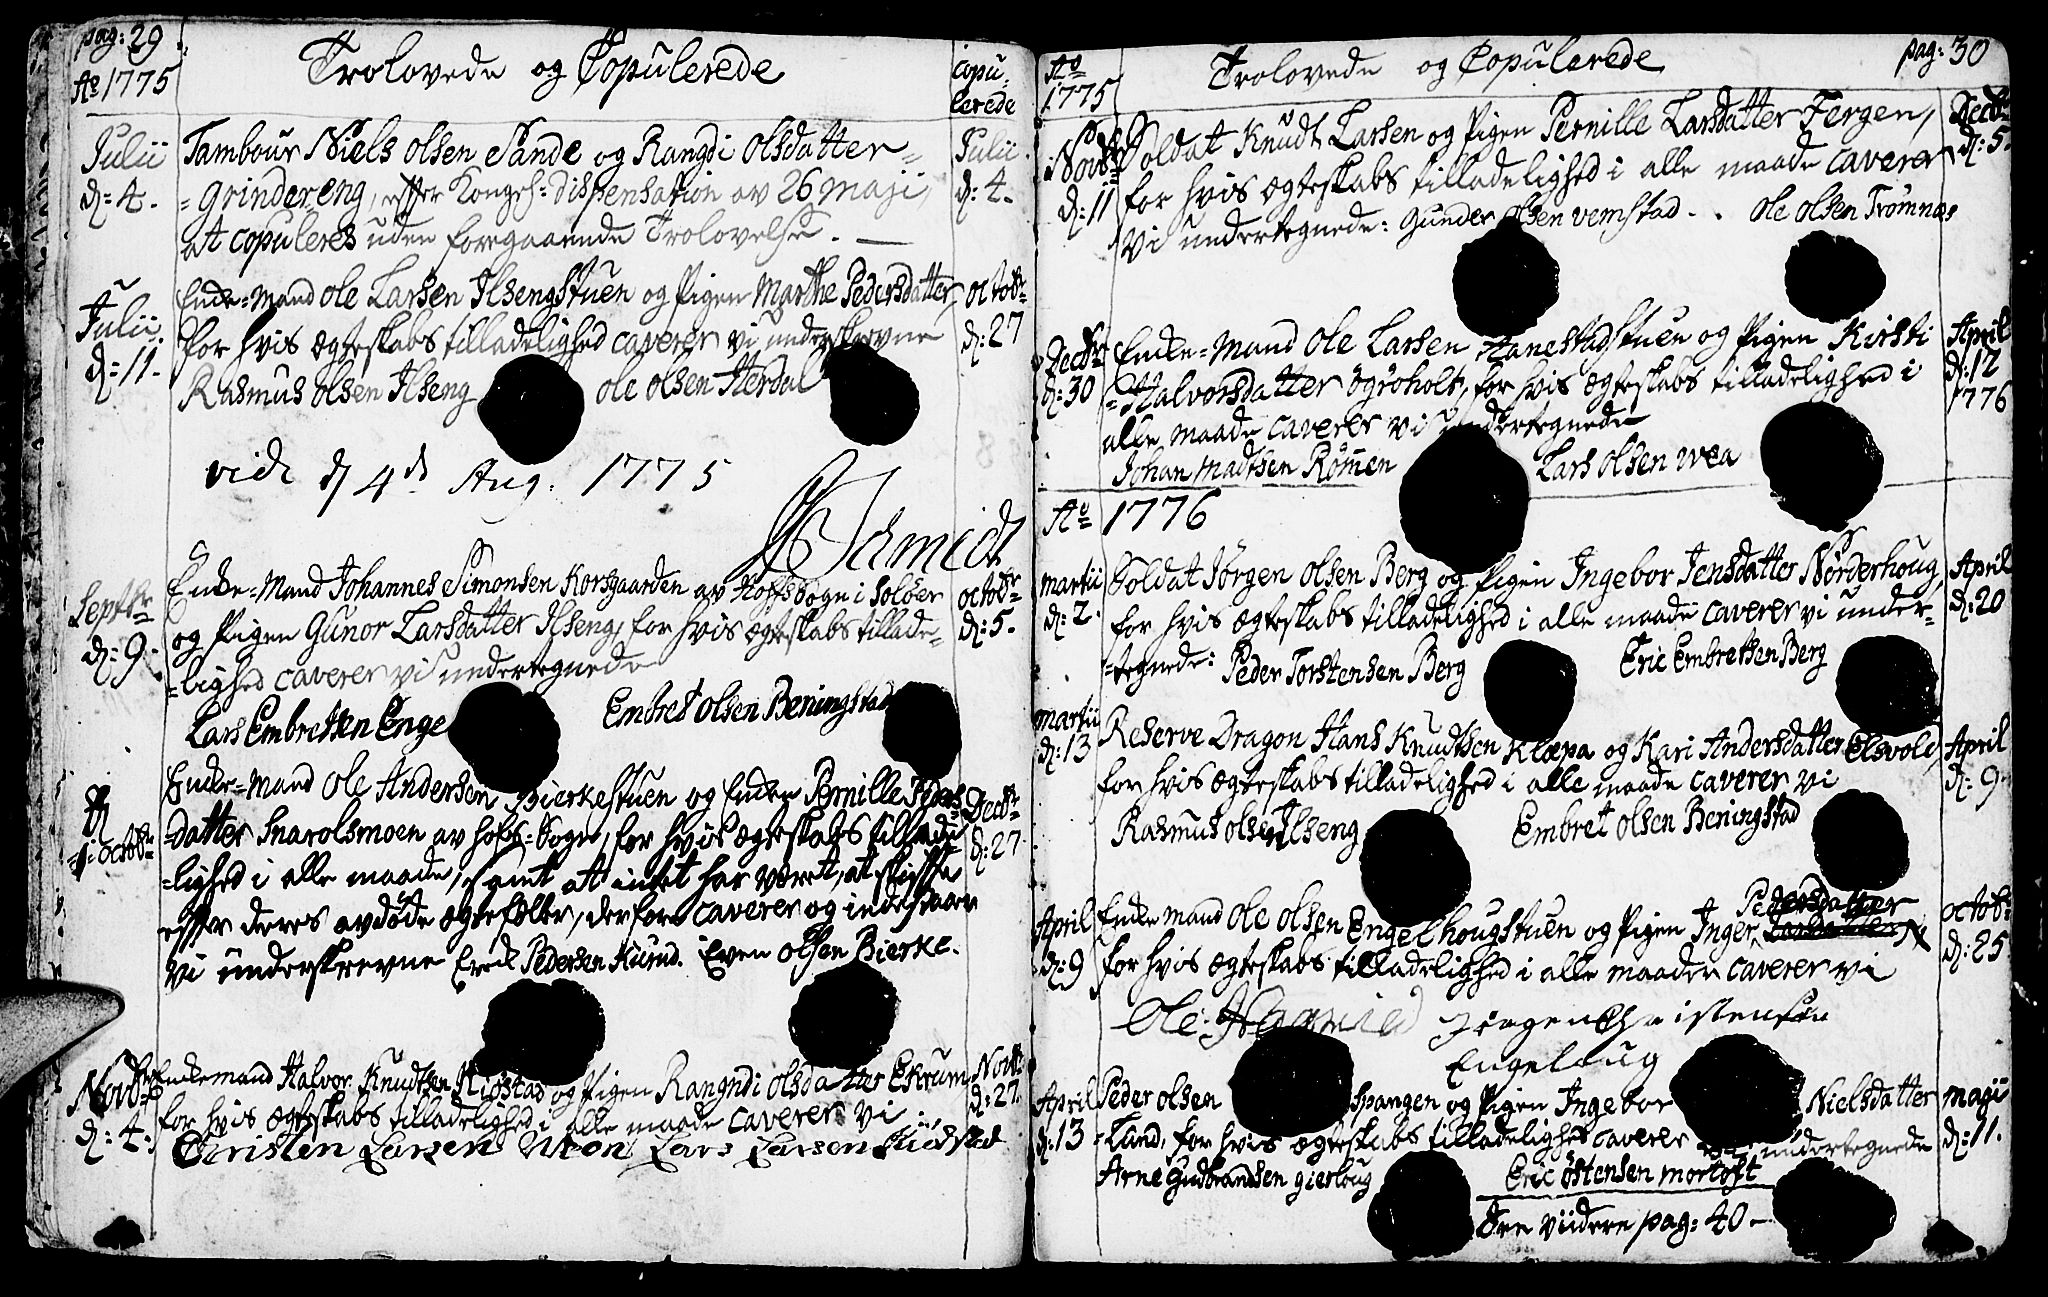 pag: 29
Ao 1775
Trolovede og Copulerede
copu-
lerede
Julii
d: 4.
Tambour Niels Olsen Sande og Rangdi Olsdatter
Julii
d: 4.
=Grindereng, efter Kongel: Dispensation av 26 Maji,
at copuleres uden foregaaende Trolovelse.
Julii
d: 11.
Enke-Mand Ole Larsen Ilsengstuen og Pigen Marthe Pedersdatter
octobr
d: 27
for hvis Ægteskabs tilladelighed caverer vi underskrevne
Rasmus Olsen Ilseng Ole Olsen Herdal
vidi d 4de Aug. 1775
Schmidt
Septbr
d: 9.
Enke-Mand Johannes Simonsen Korsgaarden av Hofsogn i Soløer
octobr
d: 5.
og Pigen Gunor Larsdatter Ilseng, for hvis Ægteskabs tillade-
=lighed caverer vi undertegnede
Lars Embretsen Enge Embret Olsen Beningstad
octobr
Enke-Mand Ole Andersen Bierkestuen og Enken Pernille
Decbr
d: 27
datter Snarolsmoen av Hofs-Sogn, for hvis Ægteskabs tillade
=lighed i alle maade, samt at intet har været, at skifte
efter deres avdøde Ægtefæller, derfore caverer og indestaar
vi underskrevne Erick Pedersen Hurud. Even Olsen Bierke.
Novbr
d: 4.
Enkemand Halvor Knudtsen Kiostad og Pigen Rangndi Olsdatter Ekrum
Novbr
d: 27.
for hvis Ægteskabs tilladelighed i alle maade caverer vi
Christen Larsen Lars Larsen Kiostad
pag: 30
Ao
1775
Trolovede og Copulerede
Novbr
d: 11
Soldat Knudt Larsen og Pigen Pernille Larsdatter Fergen,
Decbr
d: 5.
for hvis Ægteskabs tilladelighed i alle maade caverer
vi undertegnede: Gunder Olsen Vemstad. Ole Olsen Trømnæs
Decbr
d: 30
Enke-Mand Ole Larsen Hanestadstuen og Pigen Kirsti
April
d: 12
1776
=Halvorsdatter Ögröholt, for hvis Ægteskabs tilladelighed i
alle maade caverer vi undertegnede
Johan Madtsen Römen Lars Olsen Wea
Ao 1776
Martii
d: 2.
Soldat Jörgen Olsen Berg og Pigen Ingebor Jensdatter Nörderhoug
April
d: 20
for hvis Ægteskabs tilladelighed i alle maade caverer vi under-
=tegnede: Peder Torstensen Berg Eric Embretsen Berg
Martii
d: 13
Reserve Dragon Hans Knudtsen Klæpa og Kari Andersdatter Elsvold,
April
d: 9.
for hvis Ægteskabs tilladelighed i alle maade caverer vi
Rasmus Olsen Ilseng Embret Olsen Beningstad
Pedersdatter
April
d: 9
Enkemand Ole Olsen Engelhougstuen og Pigen Inger
octob:
d: 25
for hvis Ægteskabs tilladelighed i alle maader caverer vi
Ole Jörgen Christensen
Engeloug
April
d: 13
Peder Olsen Spangen og Pigen Ingebor Nielsdatter
Maji
d: 11.
=Lund, for hvis Ægteskabs tilladelighed caverer undertegnede
Arne Gudbrandsen Gierloug Eric Östensen Mortoft
See viidere pag: 40